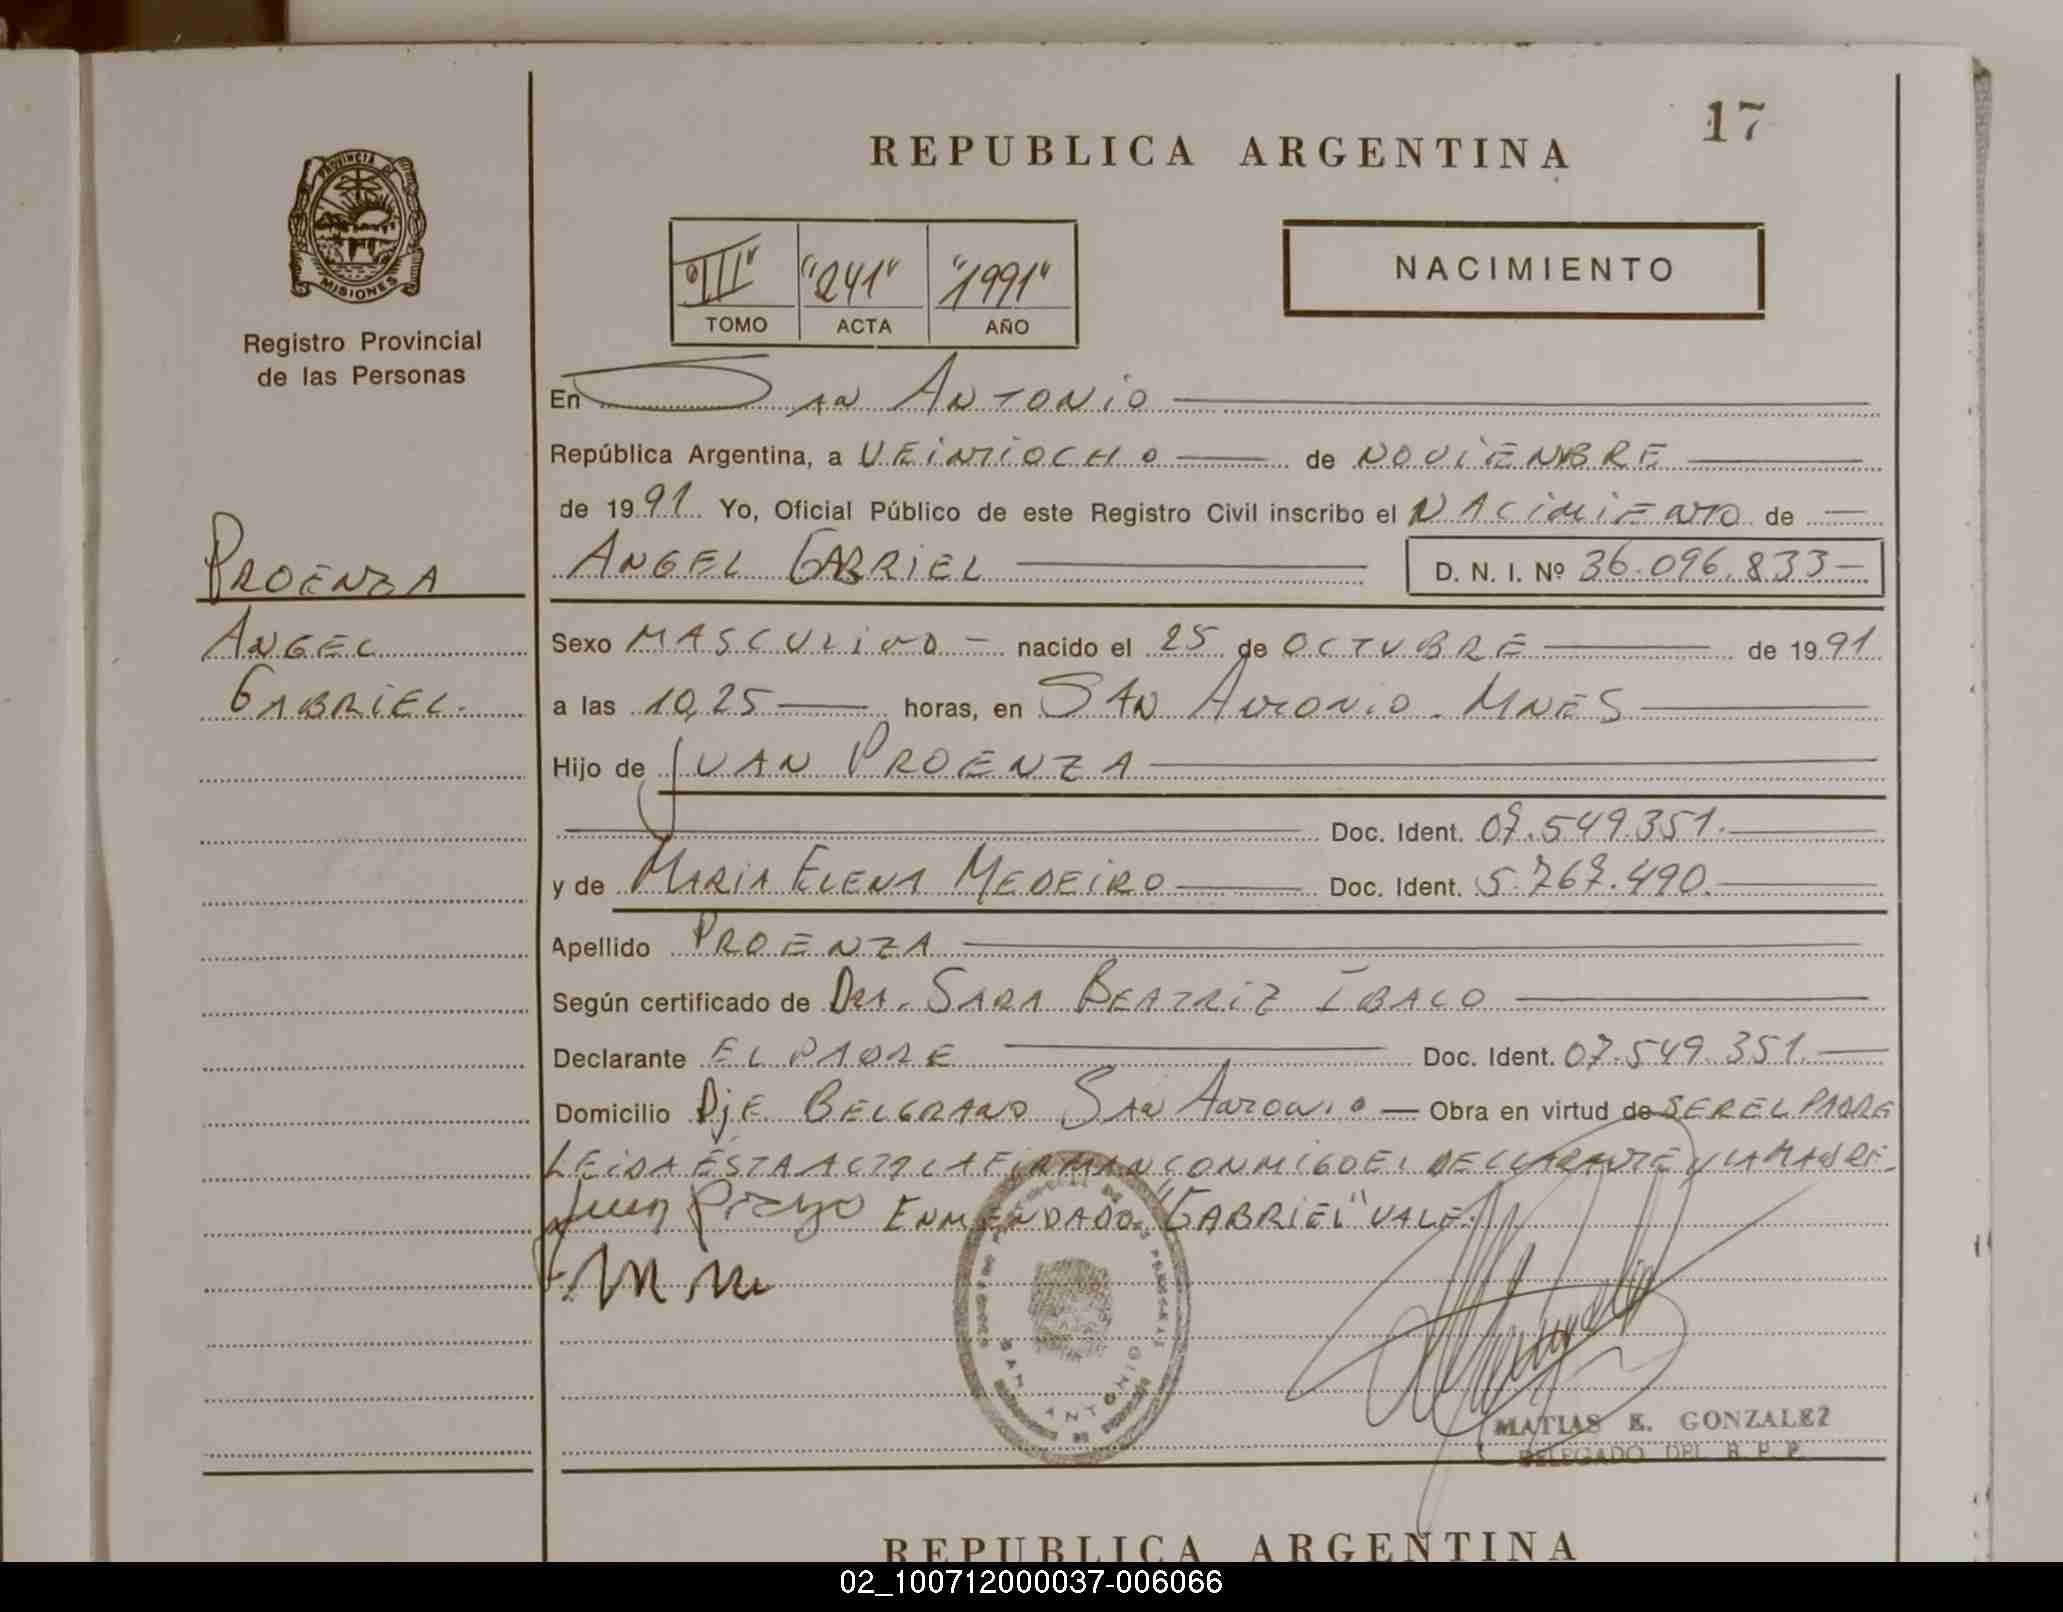 17
REPUBLICA ARGENTINA
PROVINCIA DE
MISIONES
Registro Provincial
de las Personas
"III" "241" "1991"
TOMO ACTA AÑO
NACIMIENTO
En SAN ANTONIO
República Argentina, a VEINTIOCHO de NOVIENBRE
de 1991 Yo, Oficial Público de este Registro Civil inscribo el NACIMIENTO de
ANGEL GABRIEL D. N. I. Nº 36.096.833
PROENZA
ANGEL
GABRIEL.
Sexo MASCULINO - nacido el 25 de OCTUBRE de 1991
a las 10,25 horas, en SAN ANTONIO. MNES
Hijo de JUAN PROENZA
Doc. Ident. 07.549.351.
y de MARIA ELENA MEDEIRO Doc. Ident. 5.767.490.
Apellido PROENZA
Según certificado de DRA. SARA BEATRIZ IBALO
Declarante EL PADRE Doc. Ident. 07.549.351.
Domicilio PjE BELGRANO SAN ANTONIO — Obra en virtud de SER EL PADRE
LEIDA ESTA ACTA LA FIRMAN CONMIGO EL DECLARANTE Y LA MADRE.
ENMENDADO "GABRIEL" VALE.
SAN ANTONIO
MATIAS E. GONZALEZ
DELEGADO DEL R. P. P.
REPUBLICA ARGENTINA
02_100712000037-006066